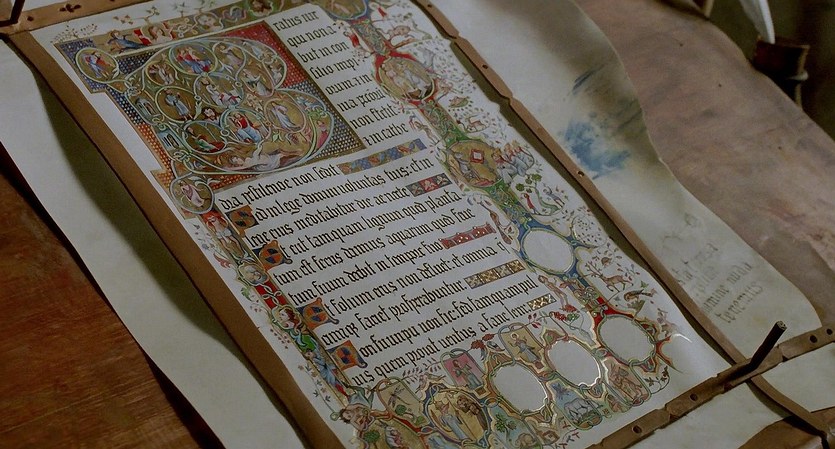 eatus uir
qui non a
biit in con
silio impi
orum et in
non stetit
t in cathe
dra pestilencie non sedit
ed in lege domini uoluntas eius: et in
lege eius meditabitur die ac nocte
t erit tamquam lignum quod planta
tum est secus aquarum quod fruc
tum suum dabit in tempore suo
t folium eius non defluet et omnia
faciet prosperabuntur
on sic impii non sic sed tamquam pul
uis quem proicit uentus a facie terre